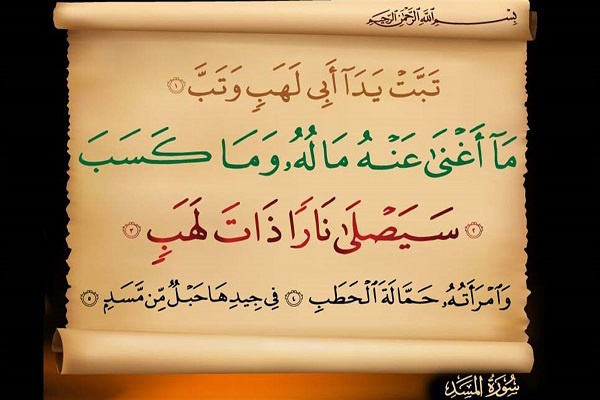 بِسْمِ اللَّهِ الرَّحْمَٰنِ الرَّحِيمِ
تَبَّتْ يَدَآ أَبِى لَهَبٍ وَتَبَّ ١
مَآ أَغْنَىٰ عَنْهُ مَالُهُۥ وَمَا كَسَبَ
٢ سَيَصْلَىٰ نَارًا ذَاتَ لَهَبٍ ٣
وَٱمْرَأَتُهُۥ حَمَّالَةَ ٱلْحَطَبِ ٤ فِى جِيدِهَا حَبْلٌ مِّن مَّسَدٍۭ ٥
سُورَةُ المَسَد